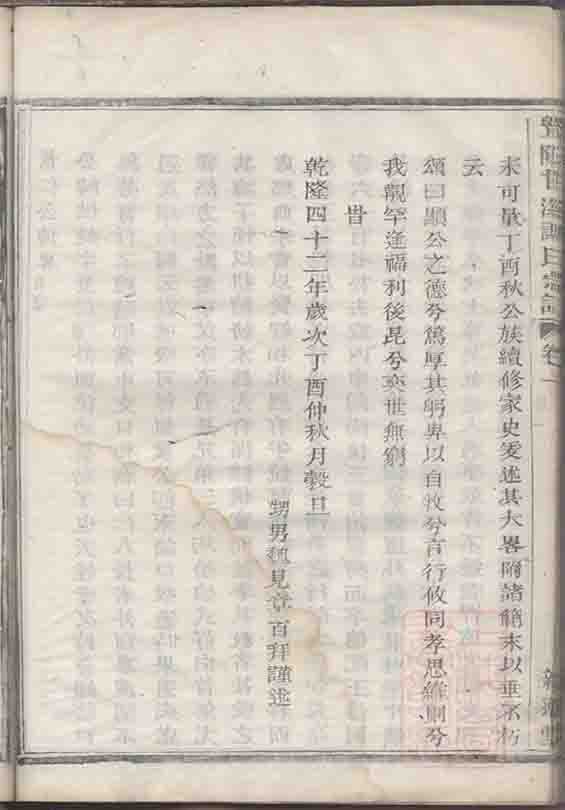 未可量丁酉秋公族續修家史爰述其大畧附諸簡末以垂不朽
云
頌曰顯公之德兮篤厚其躬卑以自牧兮言行攸同孝思維則兮
我覯罕逢福利後昆兮奕世無窮
旹
乾隆四十二年歲次丁酉仲秋月穀旦
甥男 見 百拜謹述
氏宗譜 卷一